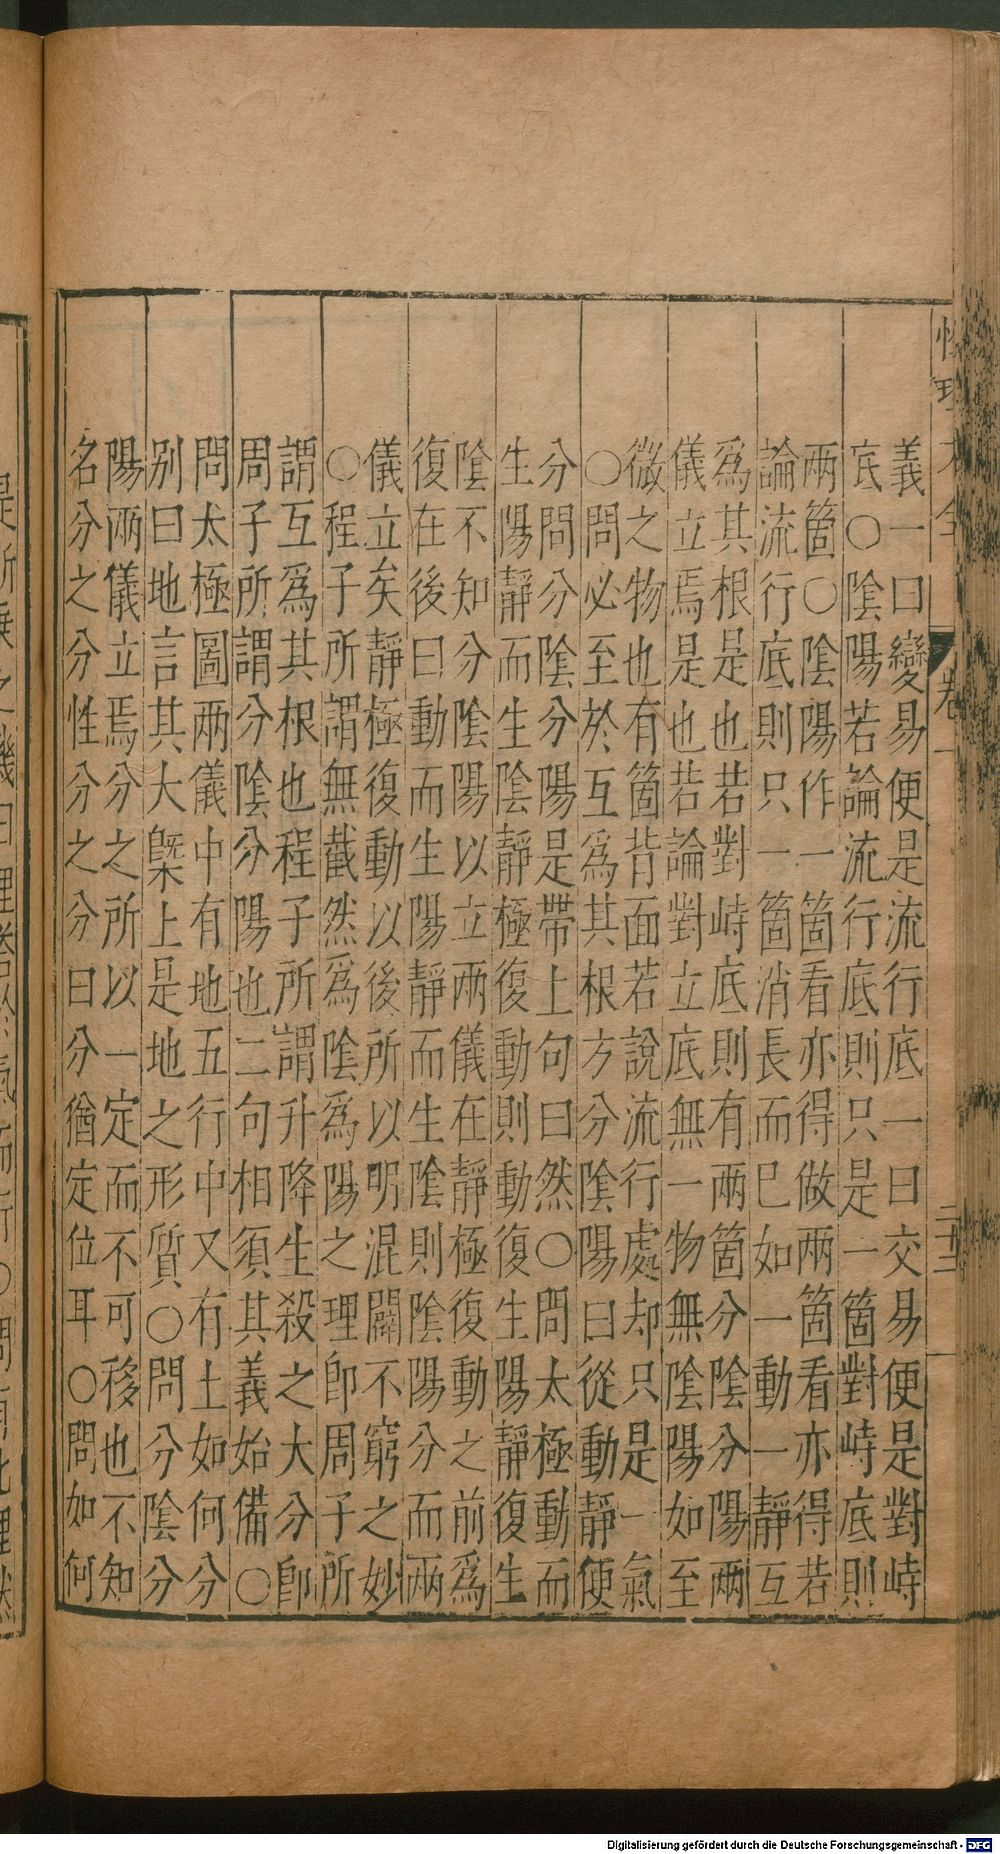 卷一
二十二
義一曰變易便是流行底一曰交易便是對峙
底○陰陽若論流行底則只是一箇對峙底則
兩箇○陰陽作一箇看亦得做兩箇看亦得若
論流行底則只一箇消長而已如一動一靜互
爲其根是也若對峙底則有兩箇分陰分陽兩
儀立焉是也若論對立底無一物無陰陽如至
微之物也有箇背面若說流行處却只是一氣
○問必至於互爲其根方分陰陽曰從動靜便
分問分陰分陽是帶上句曰然○問太極動而
生陽靜而生陰靜極復動則動復生陽靜復生
陰不知分陰陽以立兩儀在靜極復動之前爲
復在後曰動而生陽靜而生陰則陰陽分而兩
儀立矣靜極復動以後所以明混闢不窮之妙
○程子所謂無截然爲陰爲陽之理卽周子所
謂互爲其根也程子所謂升降生殺之大分卽
周子所謂分陰分陽也二句相須其義始備○
問太極圖兩儀中有地五行中又有土如何分
别曰地言其大槩上是地之形質○問分陰分
陽兩儀立焉分之所以一定而不可移也不知
名分之分性分之分曰分猶定位耳○問如何
Digitalisierung gefördert durch die Deutsche Forschungsgemeinschaft - DFG